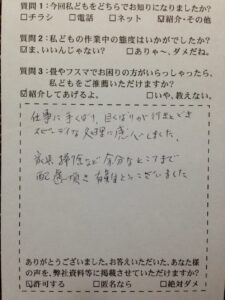 質問1:今回私どもをどちらでお知りになりましたか?
□チラシ □電話 □ネット ☑紹介・その他
質問2:私どもの作業中の態度はいかがでしたか?
☑ま、いいんじゃない? □ありゃ~、ダメだね。
質問3:畳やフスマでお困りの方がいらっしゃったら、
私どもをご推薦いただけますか?
☑紹介してあげるよ。 □いや、教えない。
仕事に手くばり、目くばりが行きとどき
スピーディな処理に感心しました。
最終掃除など余分なところまで
配慮頂き有難うございました
ありがとうございました。お答えいただいた、あなた様
の声を、弊社資料等に掲載させていただけますか?
☑許可する □匿名なら □絶対ダメ